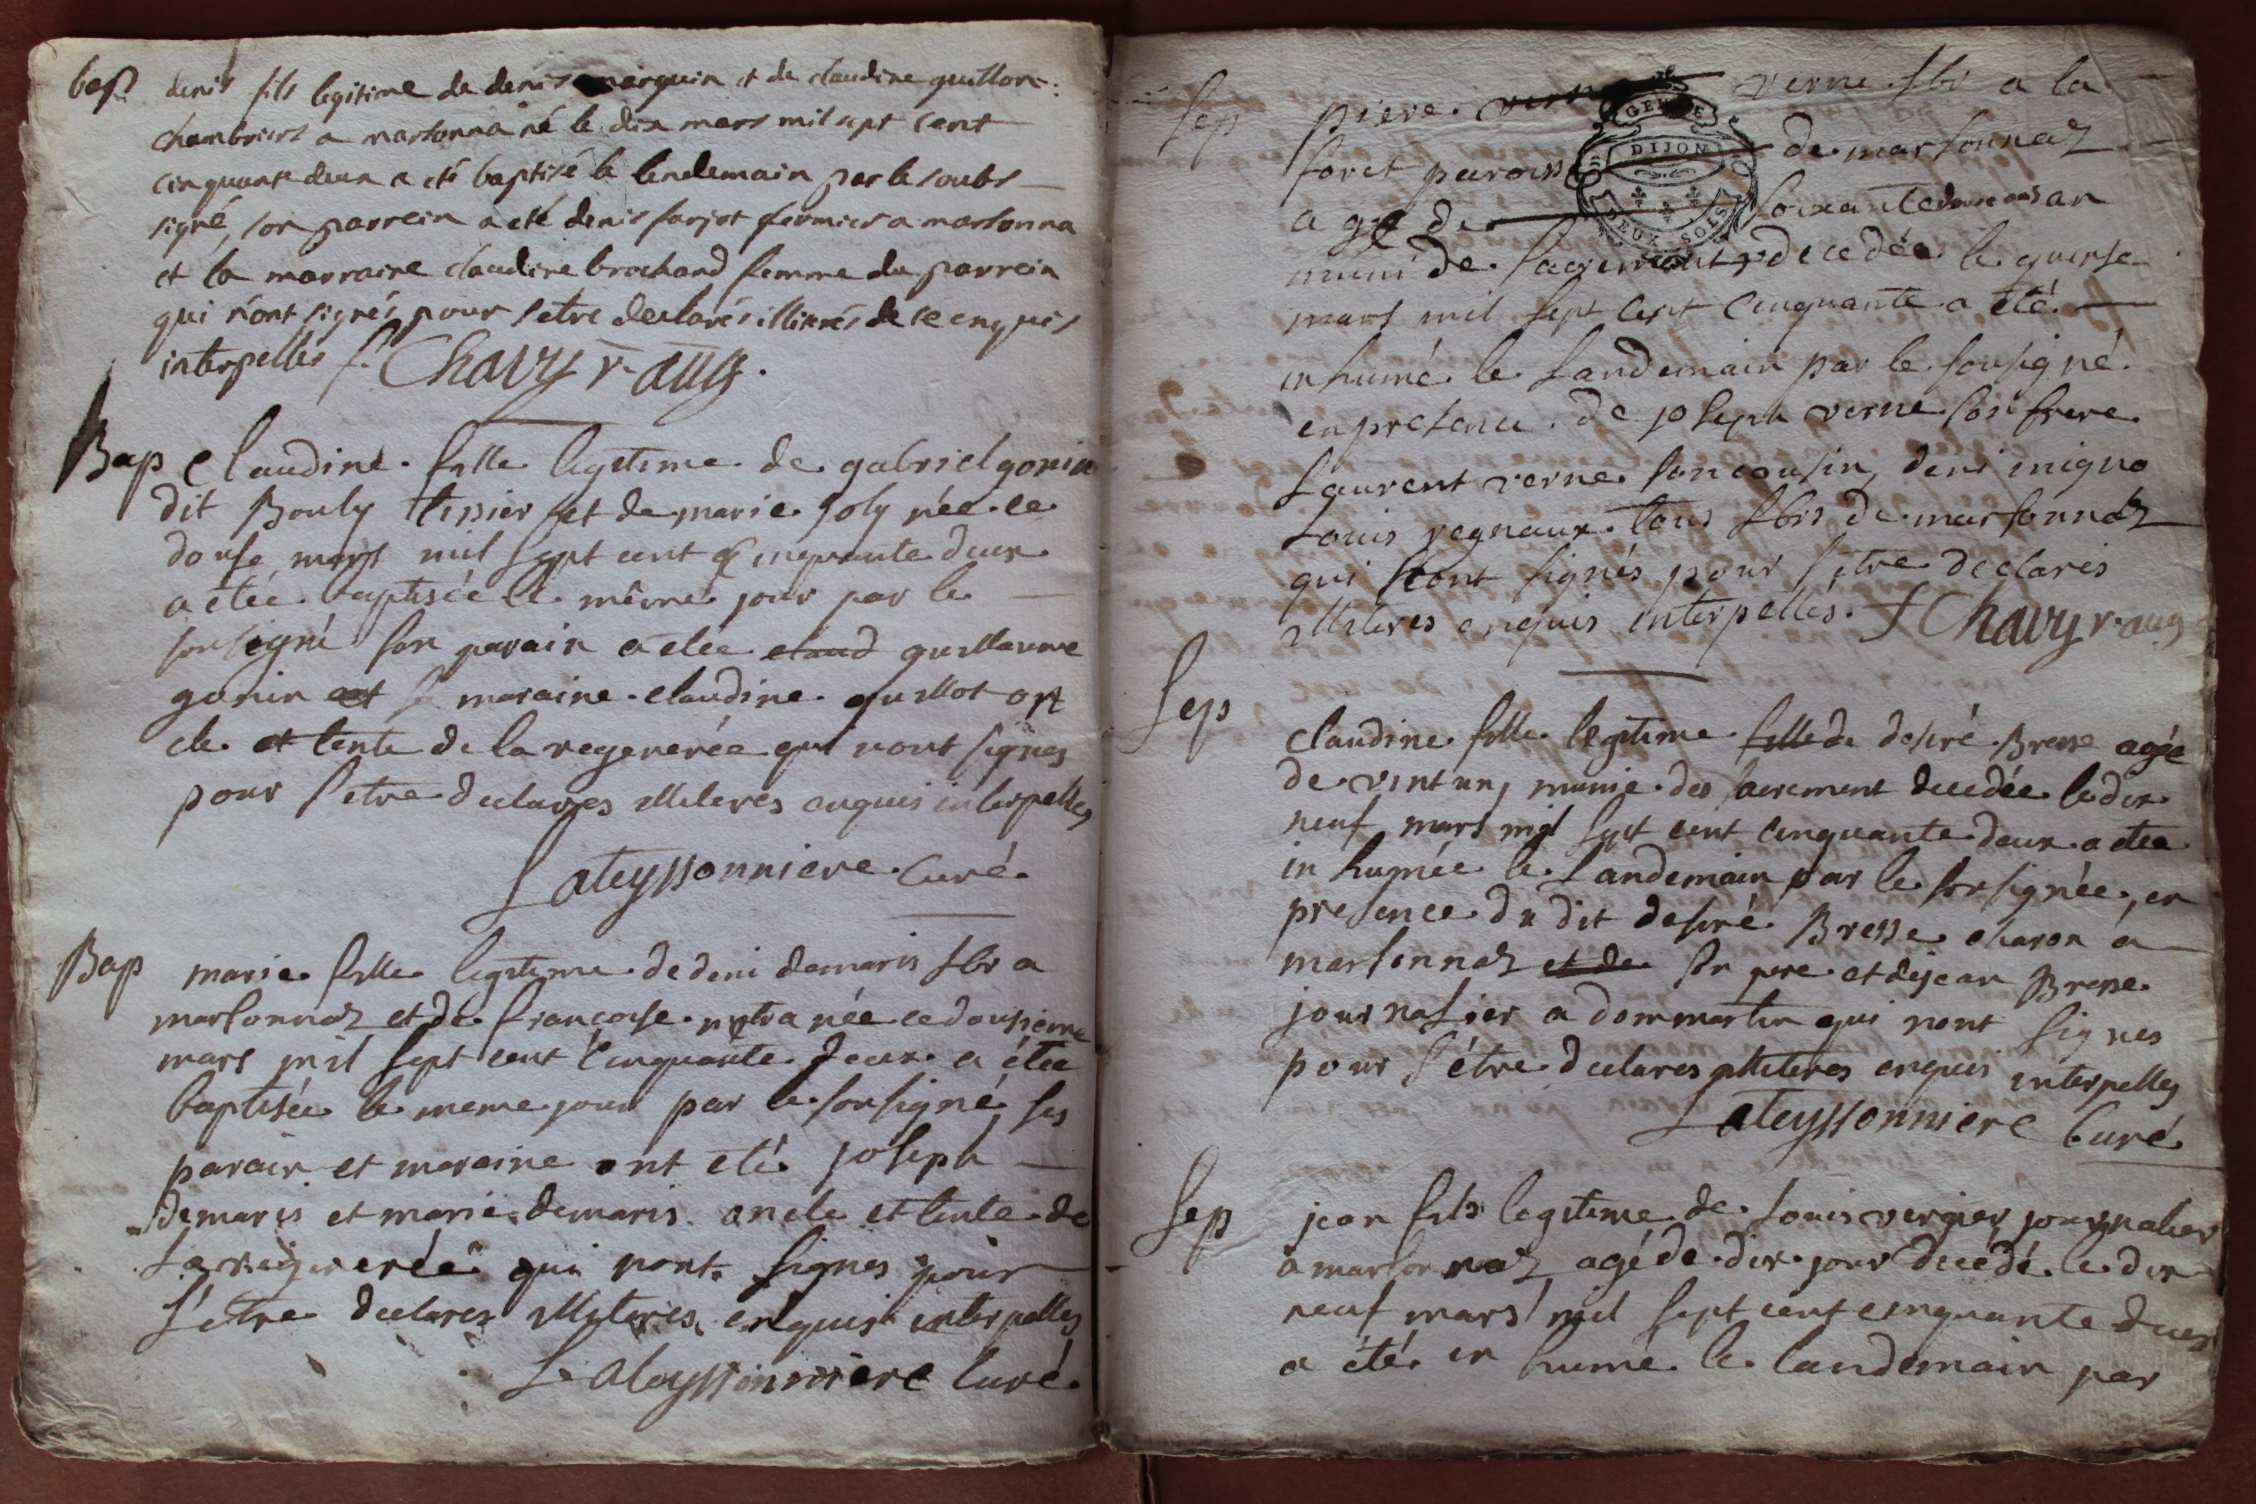 bap denis fils legitime de denis marguin et de claudine guillon:
chambriers a marsonna né le dix mars mil sept cent
cinquante deux a été baptisé le lendemain par le soubs
signé, son parrein a été denis farjot fermier a marsonna
et la marraine claudine brochand femme du parrein
qui n'ont signés pour setre declarés illitérés de ce enquis
interpellés f. Chavy v. aug.
Bap Claudine fille legitime de gabriel gonin
dit Bouly tisier et de marie joly née le
douse mars mil sept cent cinquante deux
a étée baptisée le même jour par le
sousigné son parain a étée claud guillaume
gonin et sa maraine claudine guillot on
cle et tente de la regenerée qui nont signes
pour setre declares illiteres enquis interpelles
Lateyssonniere Curé.
Bap marie fille legitime de deni damaris lbr a
marsonnaz et de francoise née ce dousieme
mars mil sept cent cinquante deux a étee
baptisée le meme jour par le sousigné ses
parain et maraine ont eté joseph
demaris et marie demaris oncle et tente de
la regenerée qui nont signes pour
s'etre declares illiteres enquis interpelles
Lateyssonniere Curé.
Sep piere verne verne lbr a la
foret paroisse de marsonnaz
agé de soixante an
muni de sacrements decedée le quinse
mars mil sept cent cinquante a été
inhumé le landemain par le sousigné
en presence de joseph verne son frere
Laurent verne son cousin, deni migno
Louis regnaux tous lbrs de marsonnaz
qui nont signés pour s'etre declarés
illiteres enquis interpellés. f Chavy v. aug
GEN DE
DIJON
DEUX SOLS
Sep
Claudine fille legitime fille de desiré Bresse agée
de vint un, munie des sacrement decedée le dix
neuf mars mil sept cent cinquante deux a étée
inhumée le landemain par le sousignée, en
presence du dit desiré Bresse charon a
marsonnaz et de son pere et de jean Bresse
journalier a dommartin qui nont signes
pour s'être declares illiteres enquis interpelles
Lateyssonniere Curé
Sep jean fils legitime de Louis vergier journalier
a marsonnaz agé de dix jour decedé le dix
neuf mars mil sept cent cinquante deux
a été inhumé le landemain par